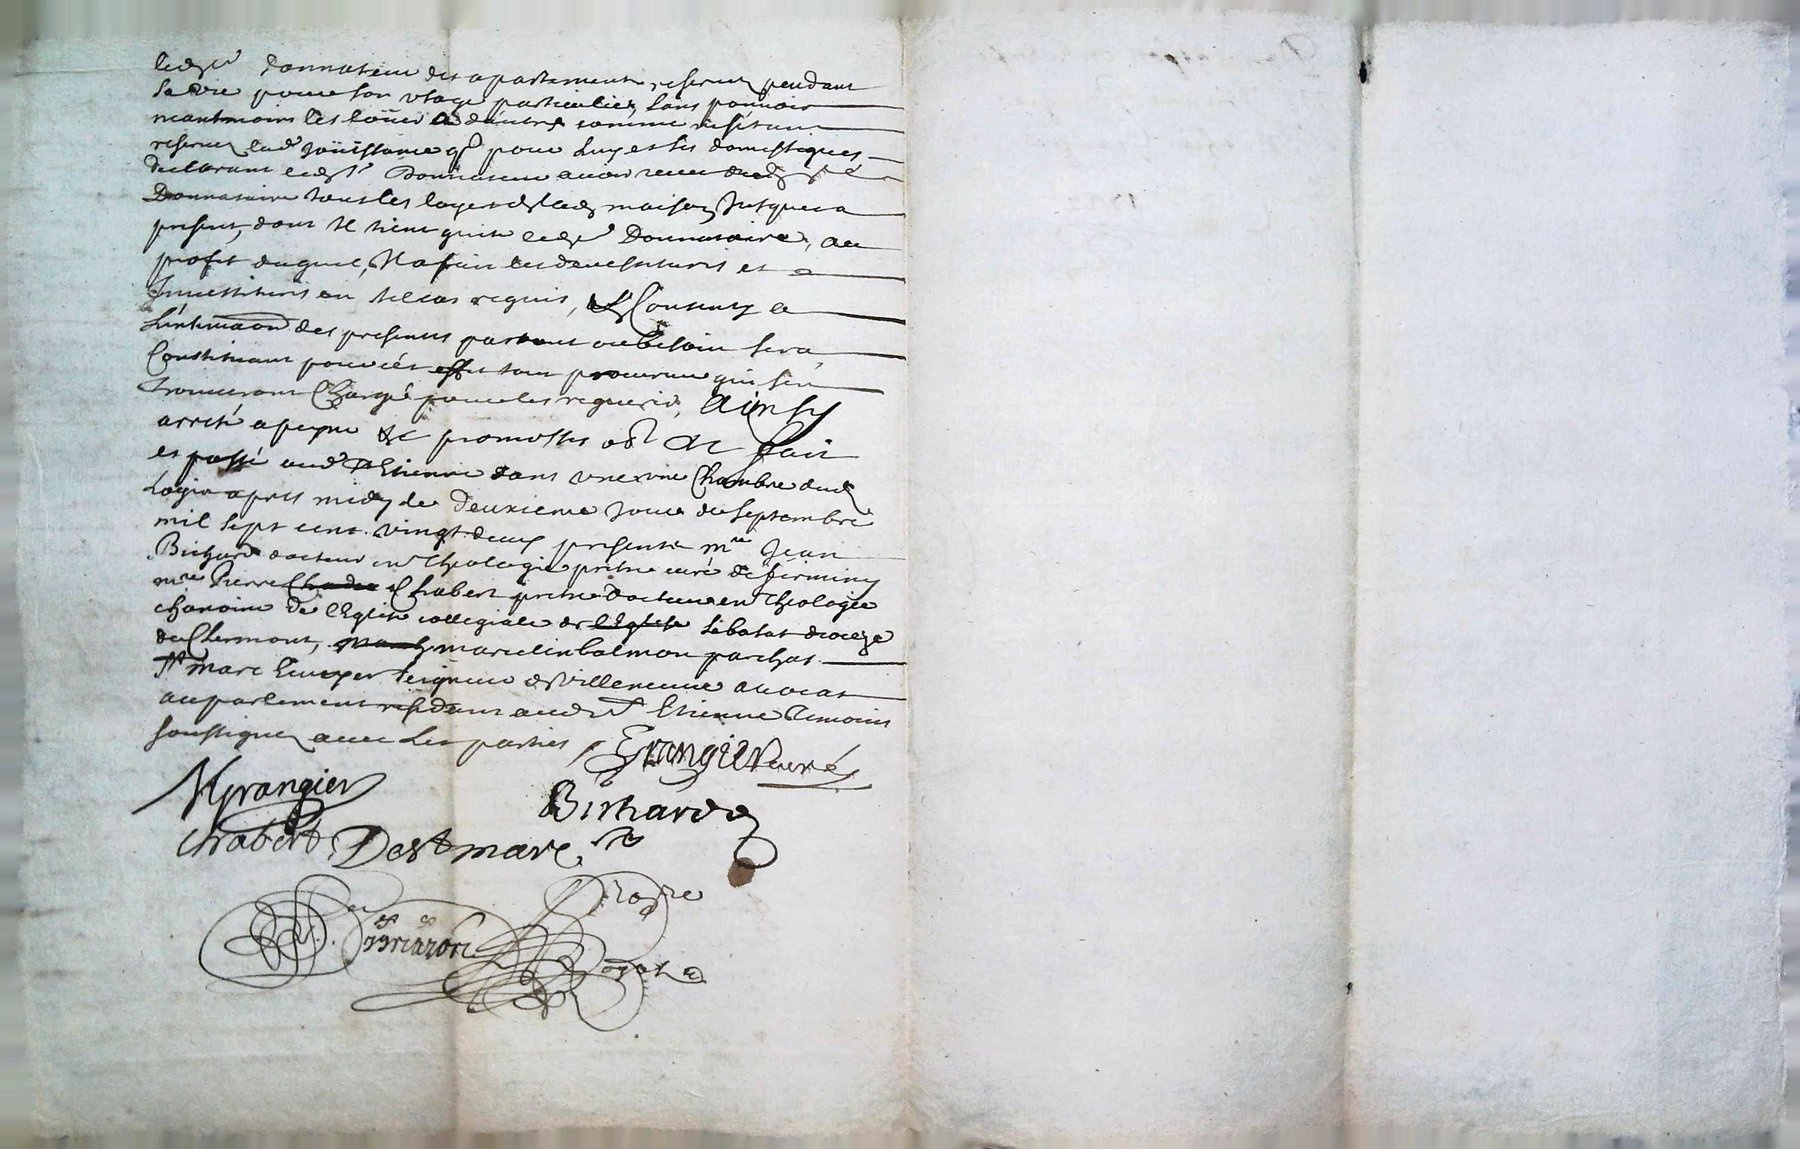 ledsr donnateur des apartements reservez pendant
sa vie pour son usage particulier, sans pouvoir
neantmoins les loüer a dautres comme nestant
reservez lad joüissance q pour luy et ses domestiques
declarant ledsr Donnateur avoir receu dud sr
Donnataire tous les loyers de lad maison jusques a
present, dont il tient quitte ledsr Donnataire, au
profit duquel, il a fait les devestitures et
Investitures en tel cas requis, & Consenty a
Linsinuaon des presentes partout ou besoin sera
Constituant pour cet effet tout procureur qui sera
trouveront Chargé pour les requerir, Ainsy
arreté a peyne &c promosses obl &c fait
et passé aud St Etienne dans une Chambre dud
Logis apres midy le deuxieme jour de septembre
mil sept cent vingt deux presents mre Jean
Bichard docteur en theologie pretre curé de firminy
mre Pierre Chabert pretre docteur en theologie
chanoine de l'Eglise collegiale de Lebatat dioceze
de Clermont, marcelin balmon
St marc Ecuyer seigneur de Villeneuve avocat
au parlement residant aud St Etienne temoins
soussignez avec les parties, Grangier curé
Grangier
Bichard
Chabert, De St marc